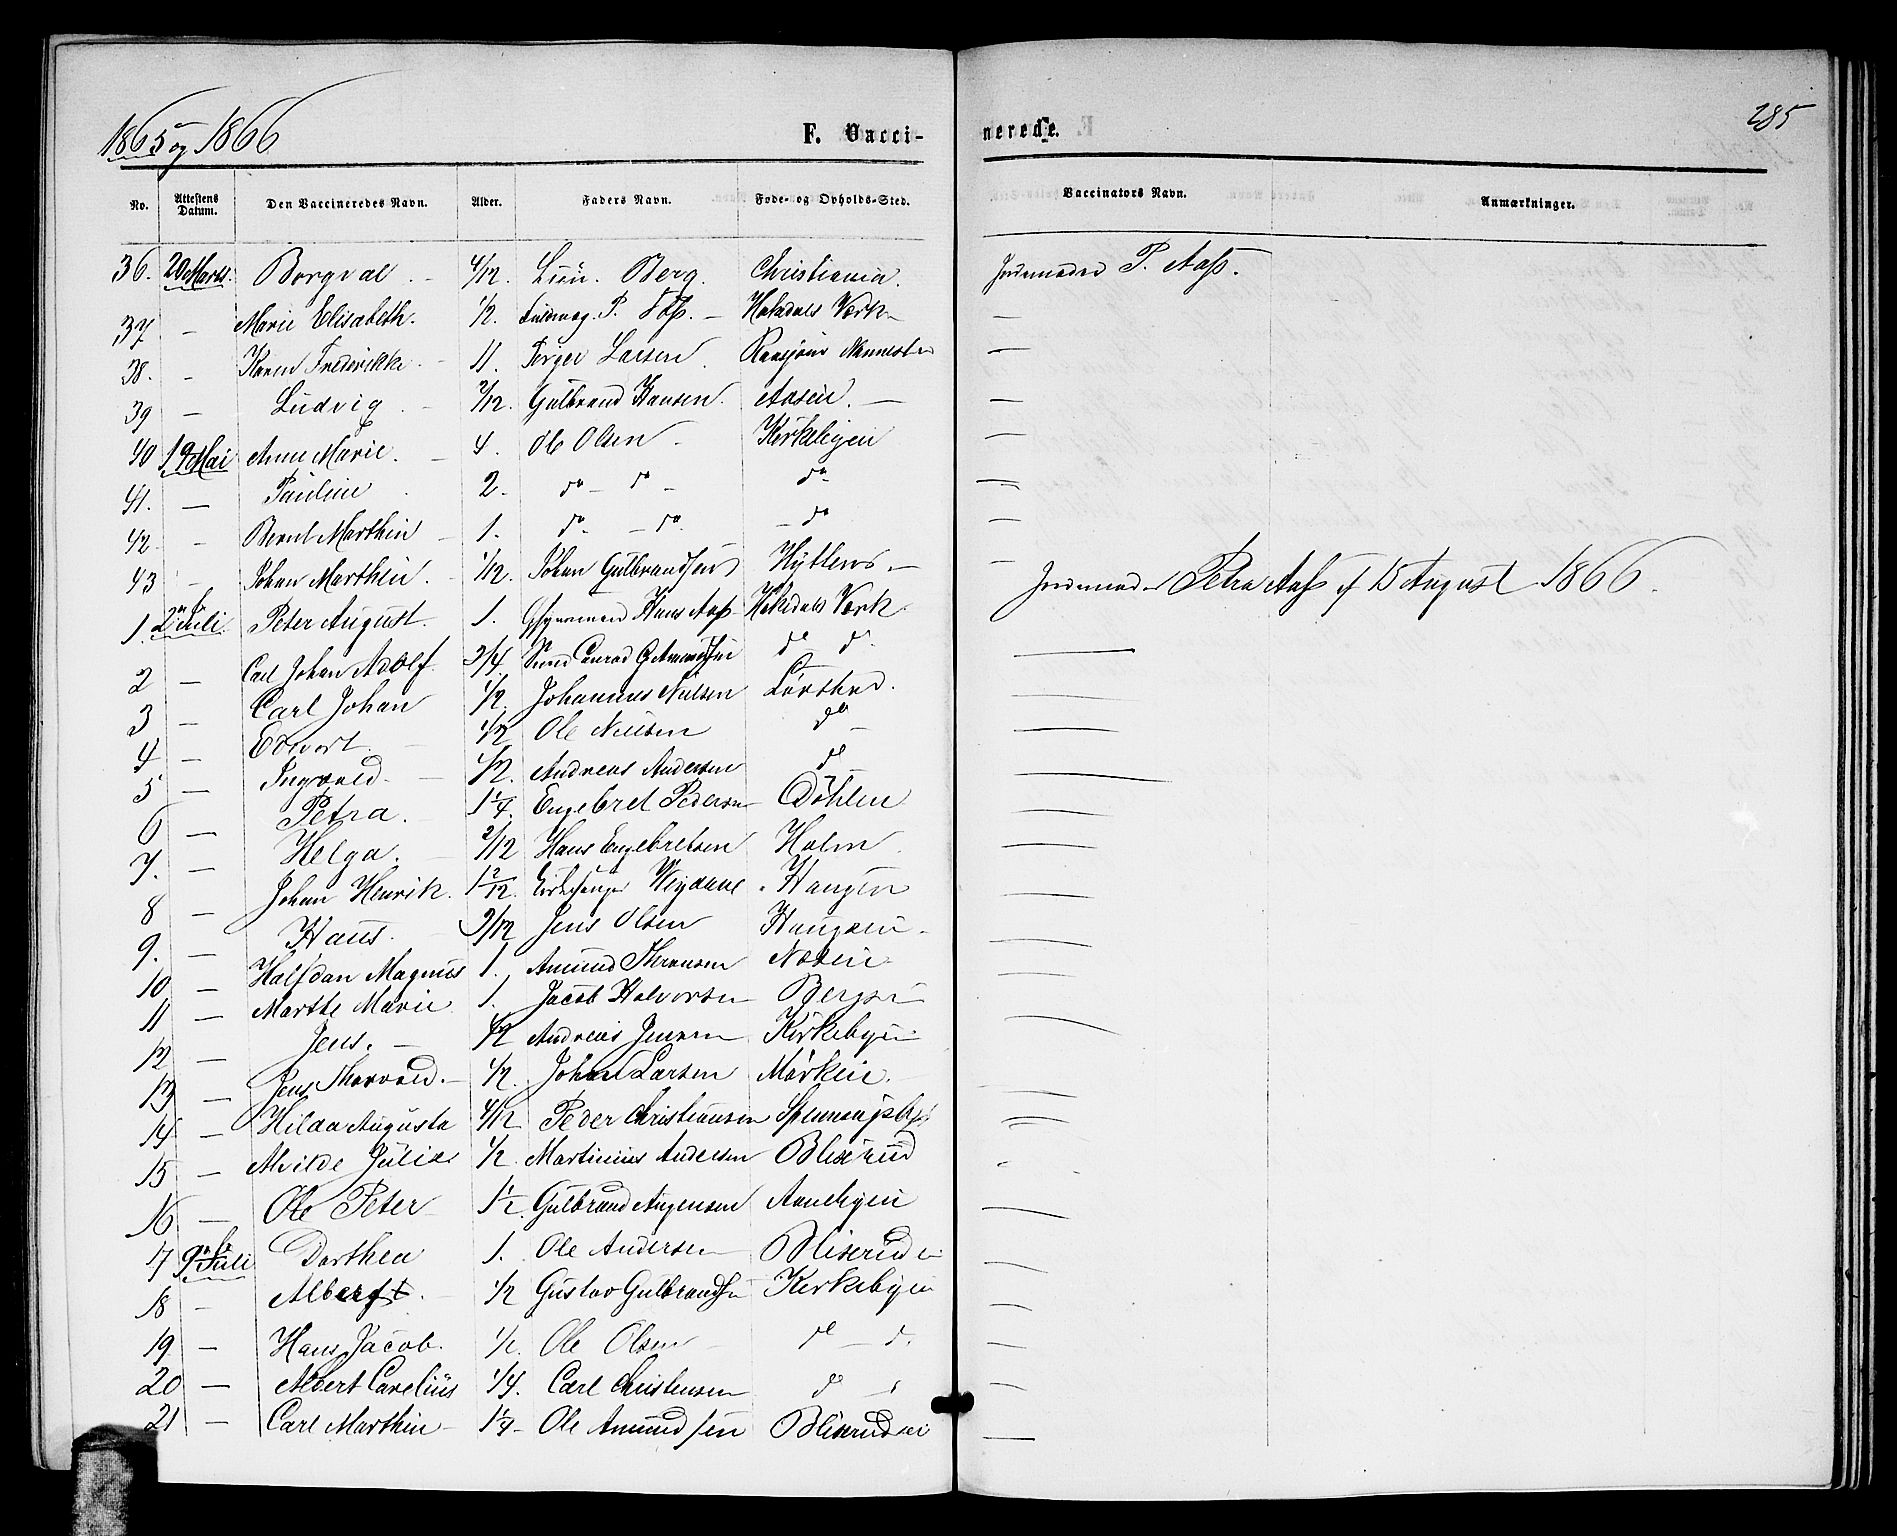 1865 og 1866
F. Vacci-
nerede.
285
No. Attestens Datum. Den Vaccineredes Navn. Alder. Faders Navn. Føde- og Opholds-Sted. Vaccinators Navn. Anmærkninger.
36. 20 Marts. Borgval 4/12. Berg. Christiania. Jordemoder P. Aass.
37 - Marie Elisabeth. 1/2. P. Hakedals Værk —
38. - Karen Fredrikke 11. Larsen Nannestad —
39 — Ludvig 2/12. Gulbrand Hansen. Aasen. —
40 19 Mai Anne Marie. 4. Ole Olsen Kirkebyen —
41. — Pauline 2. do do do —
42. - Bernt Marthin 1. do do do —
43 - Johan Marthin. 1/12. Johan Gulbrandsen —
1. 2 Juli. Peter August. 1. Hans Aass Hakedals Værk Jordemoder Petra Aass 15 August 1866.
2 — Carl Johan Adolf 3/4. Conrad d d. —
3 — Carl Johan 1/2. Johannes Nielsen —
4 — Edvort. 1/2 Ole Nielsen do —
5 — Ingvald. 1/2. Andreas Andersen do —
6 — Petra. 1 1/4. Engebret Pedersen Döhlen —
7. — Helga. 2/12 Hans Engebretsen Holm —
8 — Johan Henrik. 1 2/12. Haugen —
9. — Hans. 3/12 Jens Olsen Haugen —
10 — Halfdan Magnus 1. Amund —
11 — Marthe Marie 1. Jacob Halvorsen —
12 — Jens. 1/2 Andreas Jensen Kirkebyen —
13 — Jens Thorvald. 1/2. Johan Larsen Mörken. —
14 - Hilda Augusta 4/12 Peder Christiansen —
15 — Alvilde Julie 1/2. Martinius Andersen Bliserud —
16 — Ole Peter 1 1/2. Gulbrand —
17 9 Juli Dorthea 1. Ole Andersen —
18 - Albert. 1/2 Gustav Gulbrandsen Kirkebyen —
19 — Hans Jacob. 1/2. Ole Olsen do d. —
20 — Albert Carelius 1/4. Carl Christensen do —
21 — Carl Marthin 1 1/4 Ole Amundsen —